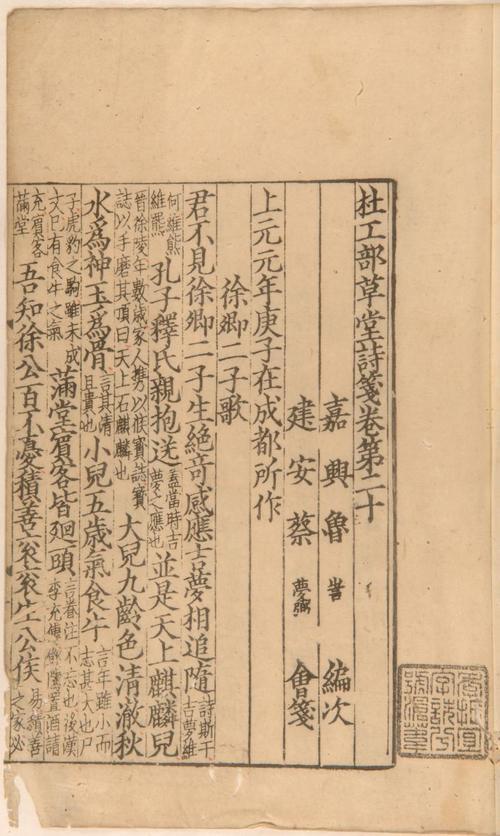 杜工部草堂詩箋卷第二十
嘉興魯 訔 編次
建安蔡 夢弼 會箋
上元元年庚子在成都所作
徐卿二子歌
君不見徐卿二子生絕奇感應吉夢相追隨詩斯干吉夢維
何維熊維羆孔子釋氏親抱送蓋當時吉夢之應也並是天上麒麟兒
晉徐陵年數歲家人携以候寶誌寶誌以手磨其頂曰天上石麒麟也大兒九齡色清澈秋
水爲神玉爲骨言其清且貴也小兒五歲氣食牛言年雖小而志甚大也尸
子虎豹之駒雖未成文已有食牛之氣滿堂賓客皆廻頭言眷注不忘也後漢李充傳置酒請
充賓客滿堂吾知徐公百不憂積善衮衮生公侯易積善之家必